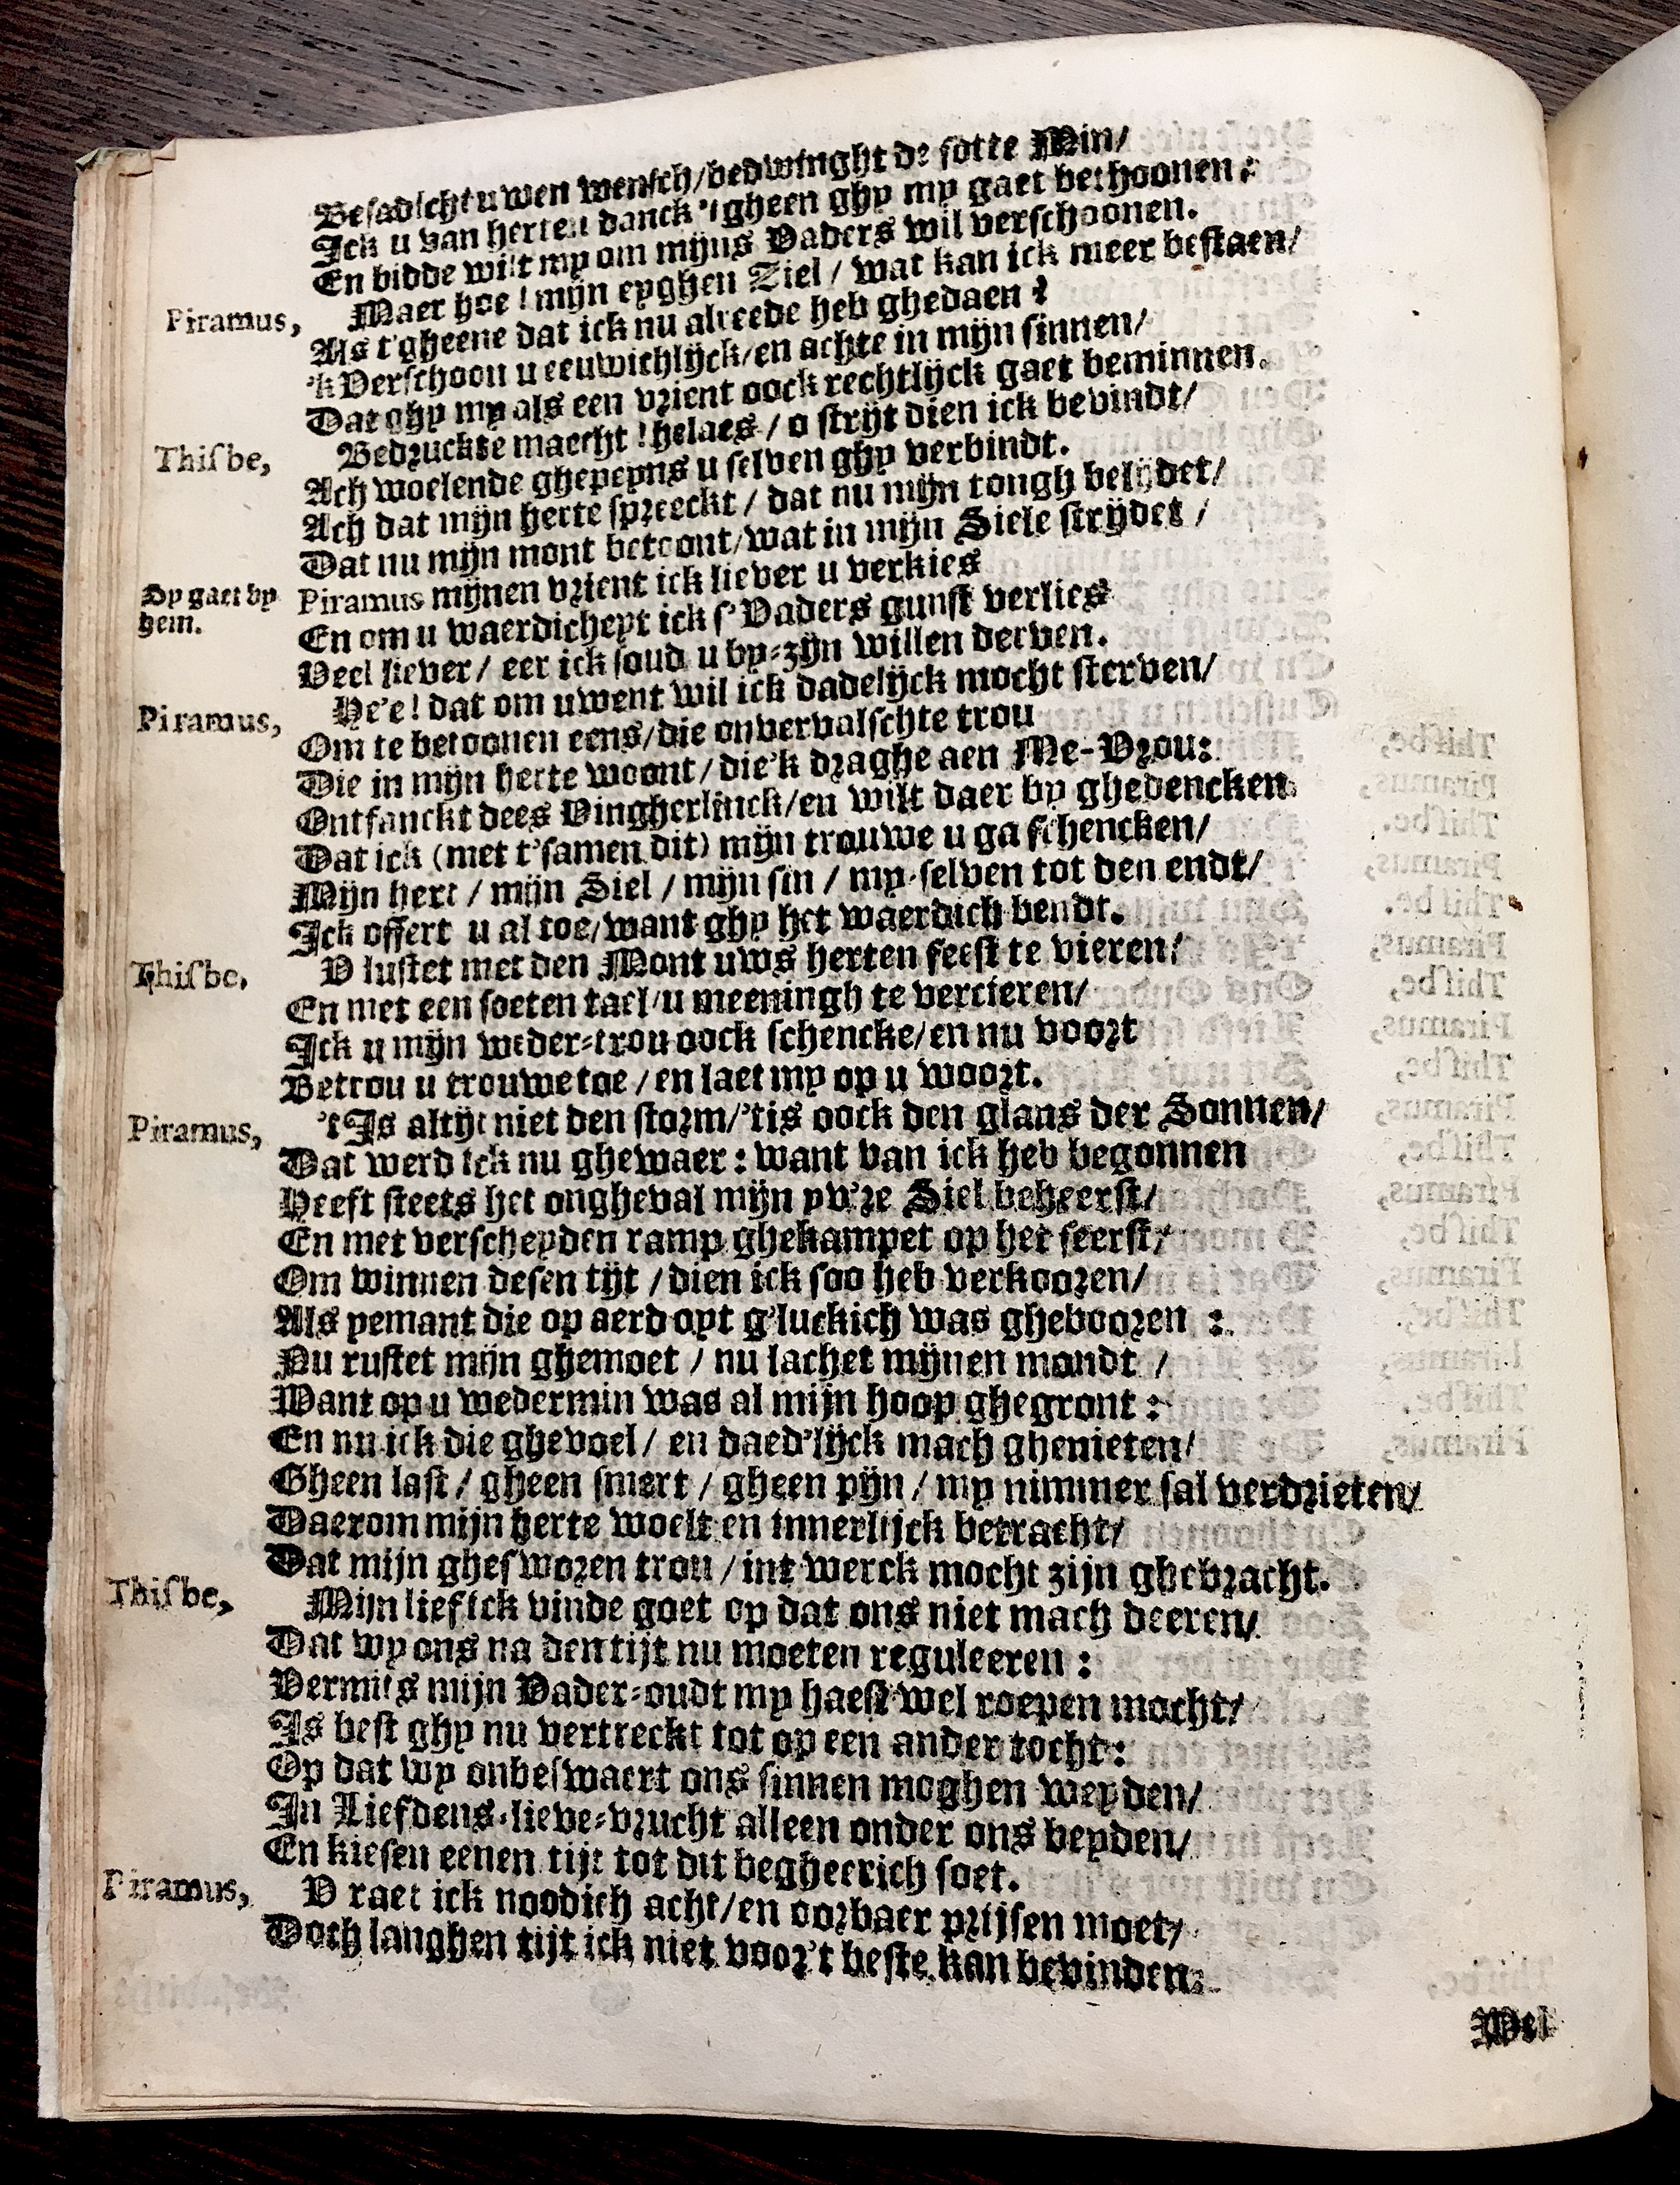 Besadicht uwen wensch/bedwinght de sotte Min/
Ick u van herten danck 'tgheen ghy my gaet bethoonen:
En bidde wilt my om mijns Vaders wil verschoonen.
Piramus, Maer hoe! mijn eyghen Ziel / wat kan ick meer bestaen/
Als t'gheene dat ick nu alreede heb ghedaen?
'k Verschoon u eeuwichlijck/en achte in mijn sinnen/
Dat ghy my als een vrient oock rechtlijck gaet beminnen.
Thisbe, Bedruckte maecht! helaes / o strijt dien ick bevindt/
Ach woelende ghepeyns u selven ghy verbindt.
Ach dat mijn herte spreeckt / dat nu mijn tongh belijdet/
Dat nu mijn mont betoont/wat in mijn Siele strijdet /
Sy gaet by hem. Piramus mijnen vrient ick liever u verkies
En om u waerdicheyt ick s'Vaders gunst verlies
Veel liever / eer ick soud u by-zijn willen derven.
Piramus, He'e! dat om uwent wil ick dadelijck mocht sterven/
Om te betoonen eens/die onvervalschte trou
Die in mijn herte woont / die'k draghe aen Me-Vrou:
Ontfanckt dees Vingherlinck/en wilt daer by ghedencken
Dat ick (met t'samen dit) mijn trouwe u ga schencken/
Mijn hert / mijn Siel / mijn sin / my-selven tot den endt/
Ick offert u al toe/want ghy het waerdich bendt.
Thisbe. V lustet met den Mont uws herten feest te vieren/
En met een soeten tael/u meeningh te vercieren/
Ick u mijn weder-trou oock schencke/en nu voort
Betrou u trouwe toe / en laet my op u woort.
Piramus, 't Is altijt niet den storm/'tis oock den glans der Sonnen/
Dat werd ick nu ghewaer: want van ick heb begonnen
Heeft steets het ongheval mijn yv're Siel beheerst/
En met verscheyden ramp ghekampet op het seerst/
Om winnen desen tijt / dien ick soo heb verkooren/
Als yemant die op aerd oyt g'luckich was ghebooren :
Nu rustet mijn ghemoet / nu lachet mijnen mondt /
Want op u wedermin was al mijn hoop ghegront:
En nu ick die ghevoel / en daed'lijck mach ghenieten/
Gheen last / gheen smert / gheen pijn / my nimmer sal verdrieten/
Daerom mijn herte woelt en innerlijck betracht/
Dat mijn ghesworen trou / int werck mocht zijn ghebracht.
Thisbe, Mijn lief ick vinde goet op dat ons niet mach deeren/
Dat wy ons na den tijt nu moeten reguleeren:
Vermits mijn Vader-oudt my haest wel roepen mocht/
Is best ghy nu vertreckt tot op een ander tocht:
Op dat wy onbeswaert ons sinnen moghen weyden/
In Liefdens-lieve-vrucht alleen onder ons beyden/
En kiesen eenen tijt tot dit begheerich soet.
Piramus, V raet ick noodich acht/en oorbaer prijsen moet/
Doch langhen tijt ick niet voor't beste kan bevinden:
Wel